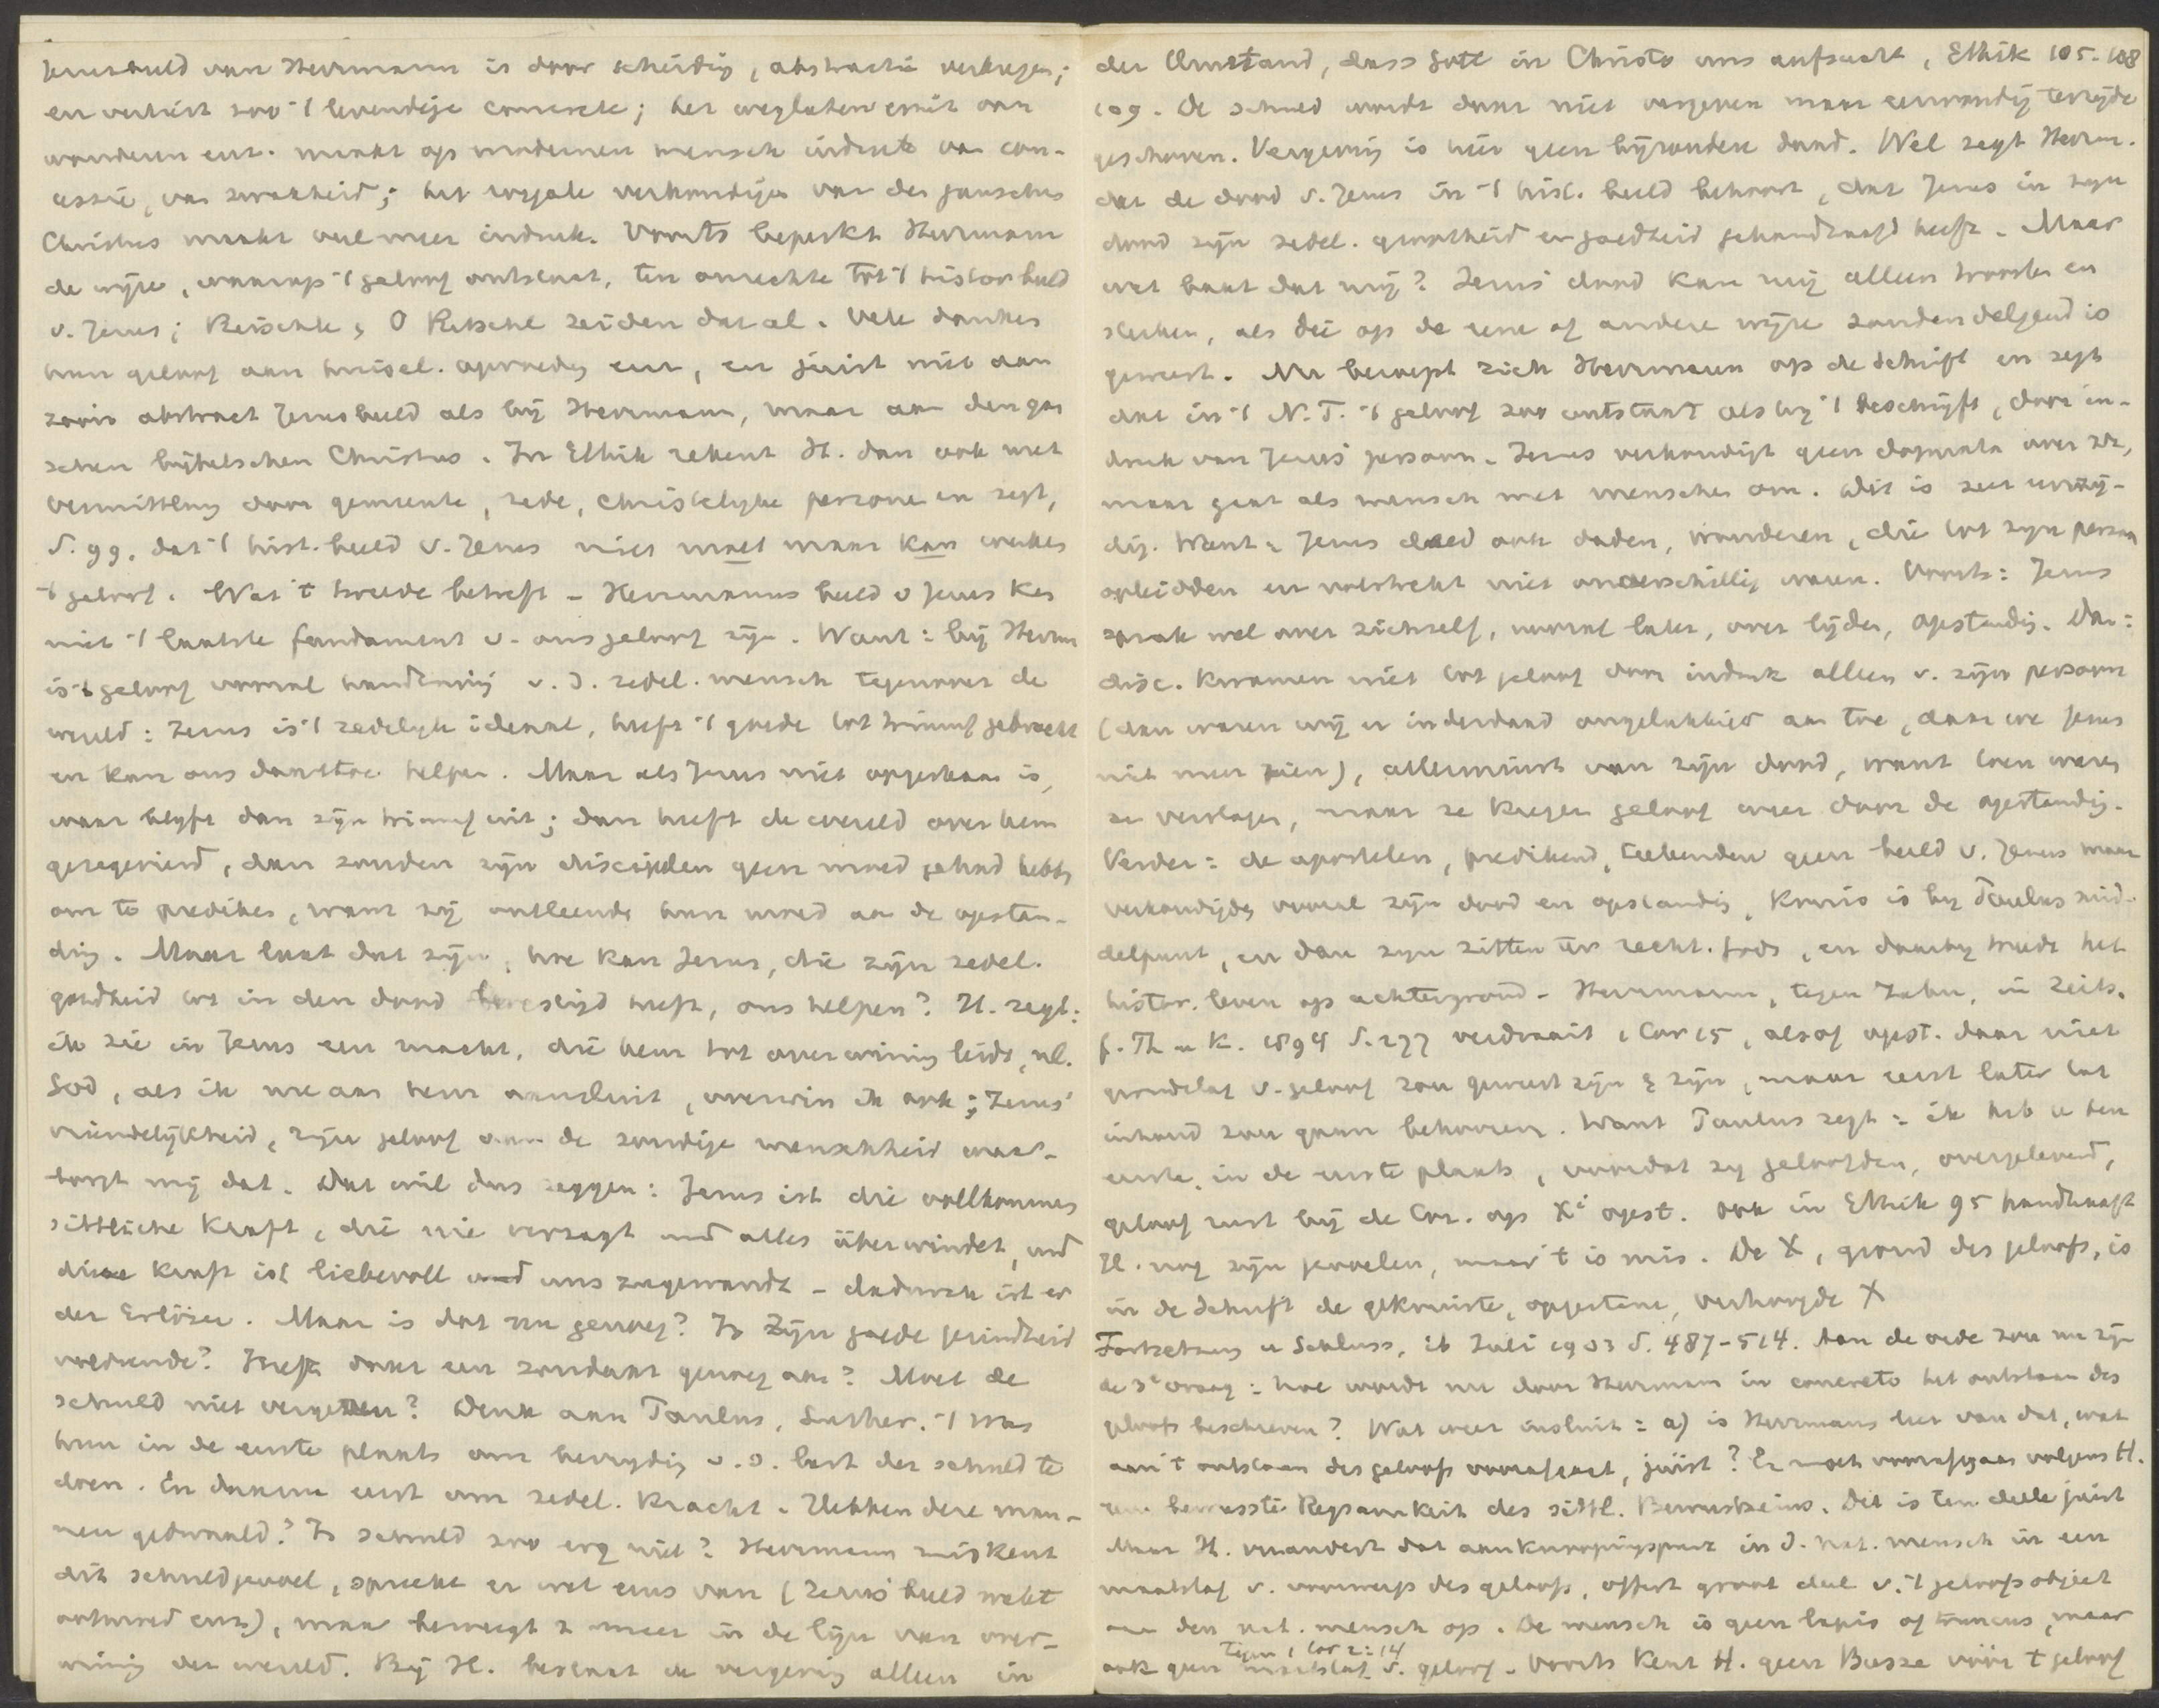 Jezusbeeld van Herrmann is door scheiding, abstractie verkregen;
en verliest zoo 't levendige concrete; het weglaten ervan van
wonderen enz. maakt op modernen mensch indruk van con-
cessie, van zwakheid; het royale verkondigen van den ganschen
Christus maakt veel meer indruk. Voorts beperkt Herrmann
de wijze, waarop 't geloof ontstaat, ten onrechte tot 't histor beeld
v. Jezus; Reischle, O Ritschl zeiden dat al. Vele danken
hun geloof aan huisel. opvoeding enz, en juist niet aan
zoo'n abstract Jezusbeeld als bij Herrmann, maar aan den gan
schen bijbelschen Christus. In Ethik rekent H. dan ook met
Vermittlung door gemeente, rede, christelijke personen en zegt,
S. 99. dat 't hist. beeld v. Jezus niet moet maar kan werken
't geloof. Wat 't tweede betreft - Herrmanns beeld v Jezus kan
niet 't laatste fundament v. ons geloof zijn. Want: bij Herrm
is 't geloof vooral handhaving v. d. zedel. mensch tegenover de
wereld: Jezus is 't zedelijk ideaal, heeft 't goede tot triumf gebracht
en kan ons daartoe helpen. Maar als Jezus niet opgestaan is,
waar blijft dan zijn triumf uit; dan heeft de wereld over hem
gezegevierd, dan zouden zijn discipelen geen moed gehad hebben
om te prediken, want zij ontleenden hun moed aan de opstan-
ding. Maar laat dat zijn, hoe kan Jezus, die zijn zedel.
goedheid tot in den dood bevestigd heeft, ons helpen? H. zegt:
ik zie in Jezus een macht, die hem tot overwinning leidt, nl.
God, als ik me aan hem aansluit, overwin ik ook; Jezus'
vriendelijkheid, zijn geloof aan de zondige menschheid waar-
borgt mij dat. Dat wil dus zeggen: Jezus ist die vollkommen
sittliche Kraft, die nie versagt und alles überwindet, und
diese Kraft ist liebevoll und uns zugewandt - dadurch ist er
der Erlöser. Maar is dat nu genoeg? Is zijn goede gezindheid
voldoende? Heeft daar een zondaar genoeg aan? Moet de
schuld niet vergeven? Denk aan Paulus, Luther. 't Was
hun in de eerste plaats om bevrijding v. d. last der schuld te
doen. En daarna eerst om zedel. kracht. Hebben deze man-
nen gedwaald? Is schuld zoo erg niet? Herrmann miskent
dit schuldgevoel, spreekt er wel eens van (Jezus' beeld wekt
ootmoed enz), maar beweegt z meer in de lijn van over-
winning der wereld. Bij H. bestaat de vergeving alleen in
der Umstand, dass Gott in Christo uns aufsucht, Ethik 105-108
109. De schuld wordt daar niet vergeven maar eenvoudig terzijde
geschoven. Vergeving is hier geen bijzondere daad. Wel zegt Herrm.
dat de dood v. Jezus in 't hist. beeld behoort, dat Jezus in zijn
dood zijn zedel. grootheid en goedheid gehandhaafd heeft. Maar
wat baat dat mij? Jezus' dood kan mij alleen troosten en
sterken, als die op de eene of andere wijze zondendelgend is
geweest. Nu beroept zich Herrmann op de Schrift en zegt
dat in 't N.T. 't geloof zoo ontstaat als hij 't beschrijft, door in-
druk van Jezus' persoon. Jezus verkondigt geen dogmata over zich,
maar gaat als mensch met menschen om. Dit is zeer eenzij-
dig. Want: Jezus deed ook daden, wonderen, die tot zijn persoon
opleidden en volstrekt niet onverschillig waren. Voorts: Jezus
sprak wel over zichzelf, vooral later, over lijden, opstanding. Dan:
disc. kwamen niet tot geloof door indruk alleen v. zijn persoon
(dan waren wij er inderdaad ongelukkig aan toe, daar we Jezus
niet meer zien), allerminst van zijn dood, want toen waren
ze verslagen, maar ze kregen geloof weer door de opstanding.
Verder: de apostelen, predikend, teekenden geen beeld v. Jezus maar
verkondigden vooral zijn dood en opstanding, Kruis is bij Paulus mid-
delpunt, en dan zijn zitten ter recht. Gods, en daarbij treedt het
histor. leven op achtergrond - Herrmann, tegen Zahn, in Zeits.
f. Th u K. 1894 S. 277 verdraait 1 Cor 15, alsof opst. daar niet
grondslag v. geloof zou geweest zijn & zijn, maar eerst later tot
inhoud zou gaan behooren. Want Paulus zegt: ik heb u ten
eerste, in de eerste plaats, voordat zij geloofden, overgeleverd,
geloof rust bij de Cor. op Xi opst. Ook in Ethik 95 handhaaft
H. nog zijn gevoelen, maar 't is mis. De X, grond des geloofs, is
in de Schrift de gekruiste, opgestane, verhoogde X
Fortsetzung u Schluss, ib Juli 1903 S. 487-514. Aan de orde zou nu zijn
de 3e vraag: hoe wordt nu door Herrmann in concreto het ontstaan des
geloofs beschreven? Wat weer insluit: a) is Herrmanns leer van dat, wat
aan 't ontstaan des geloofs voorafgaat, juist? Er moet voorafgaan volgens H.
eene bewusste Regsamkeit des sittl. Bewusstseins. Dit is ten deele juist
Maar H. verandert dat aanknoopingspunt in d. nat. mensch in een
maatstaf v. voorwerp des geloofs, offert groot deel v. 't geloofsobject
aan den nat. mensch op. De mensch is geen lapis of truncus, maar
tegen 1 Cor 2:14
ook geen maatstaf v. geloof. Voorts kent H. geen Busze vóór 't geloof